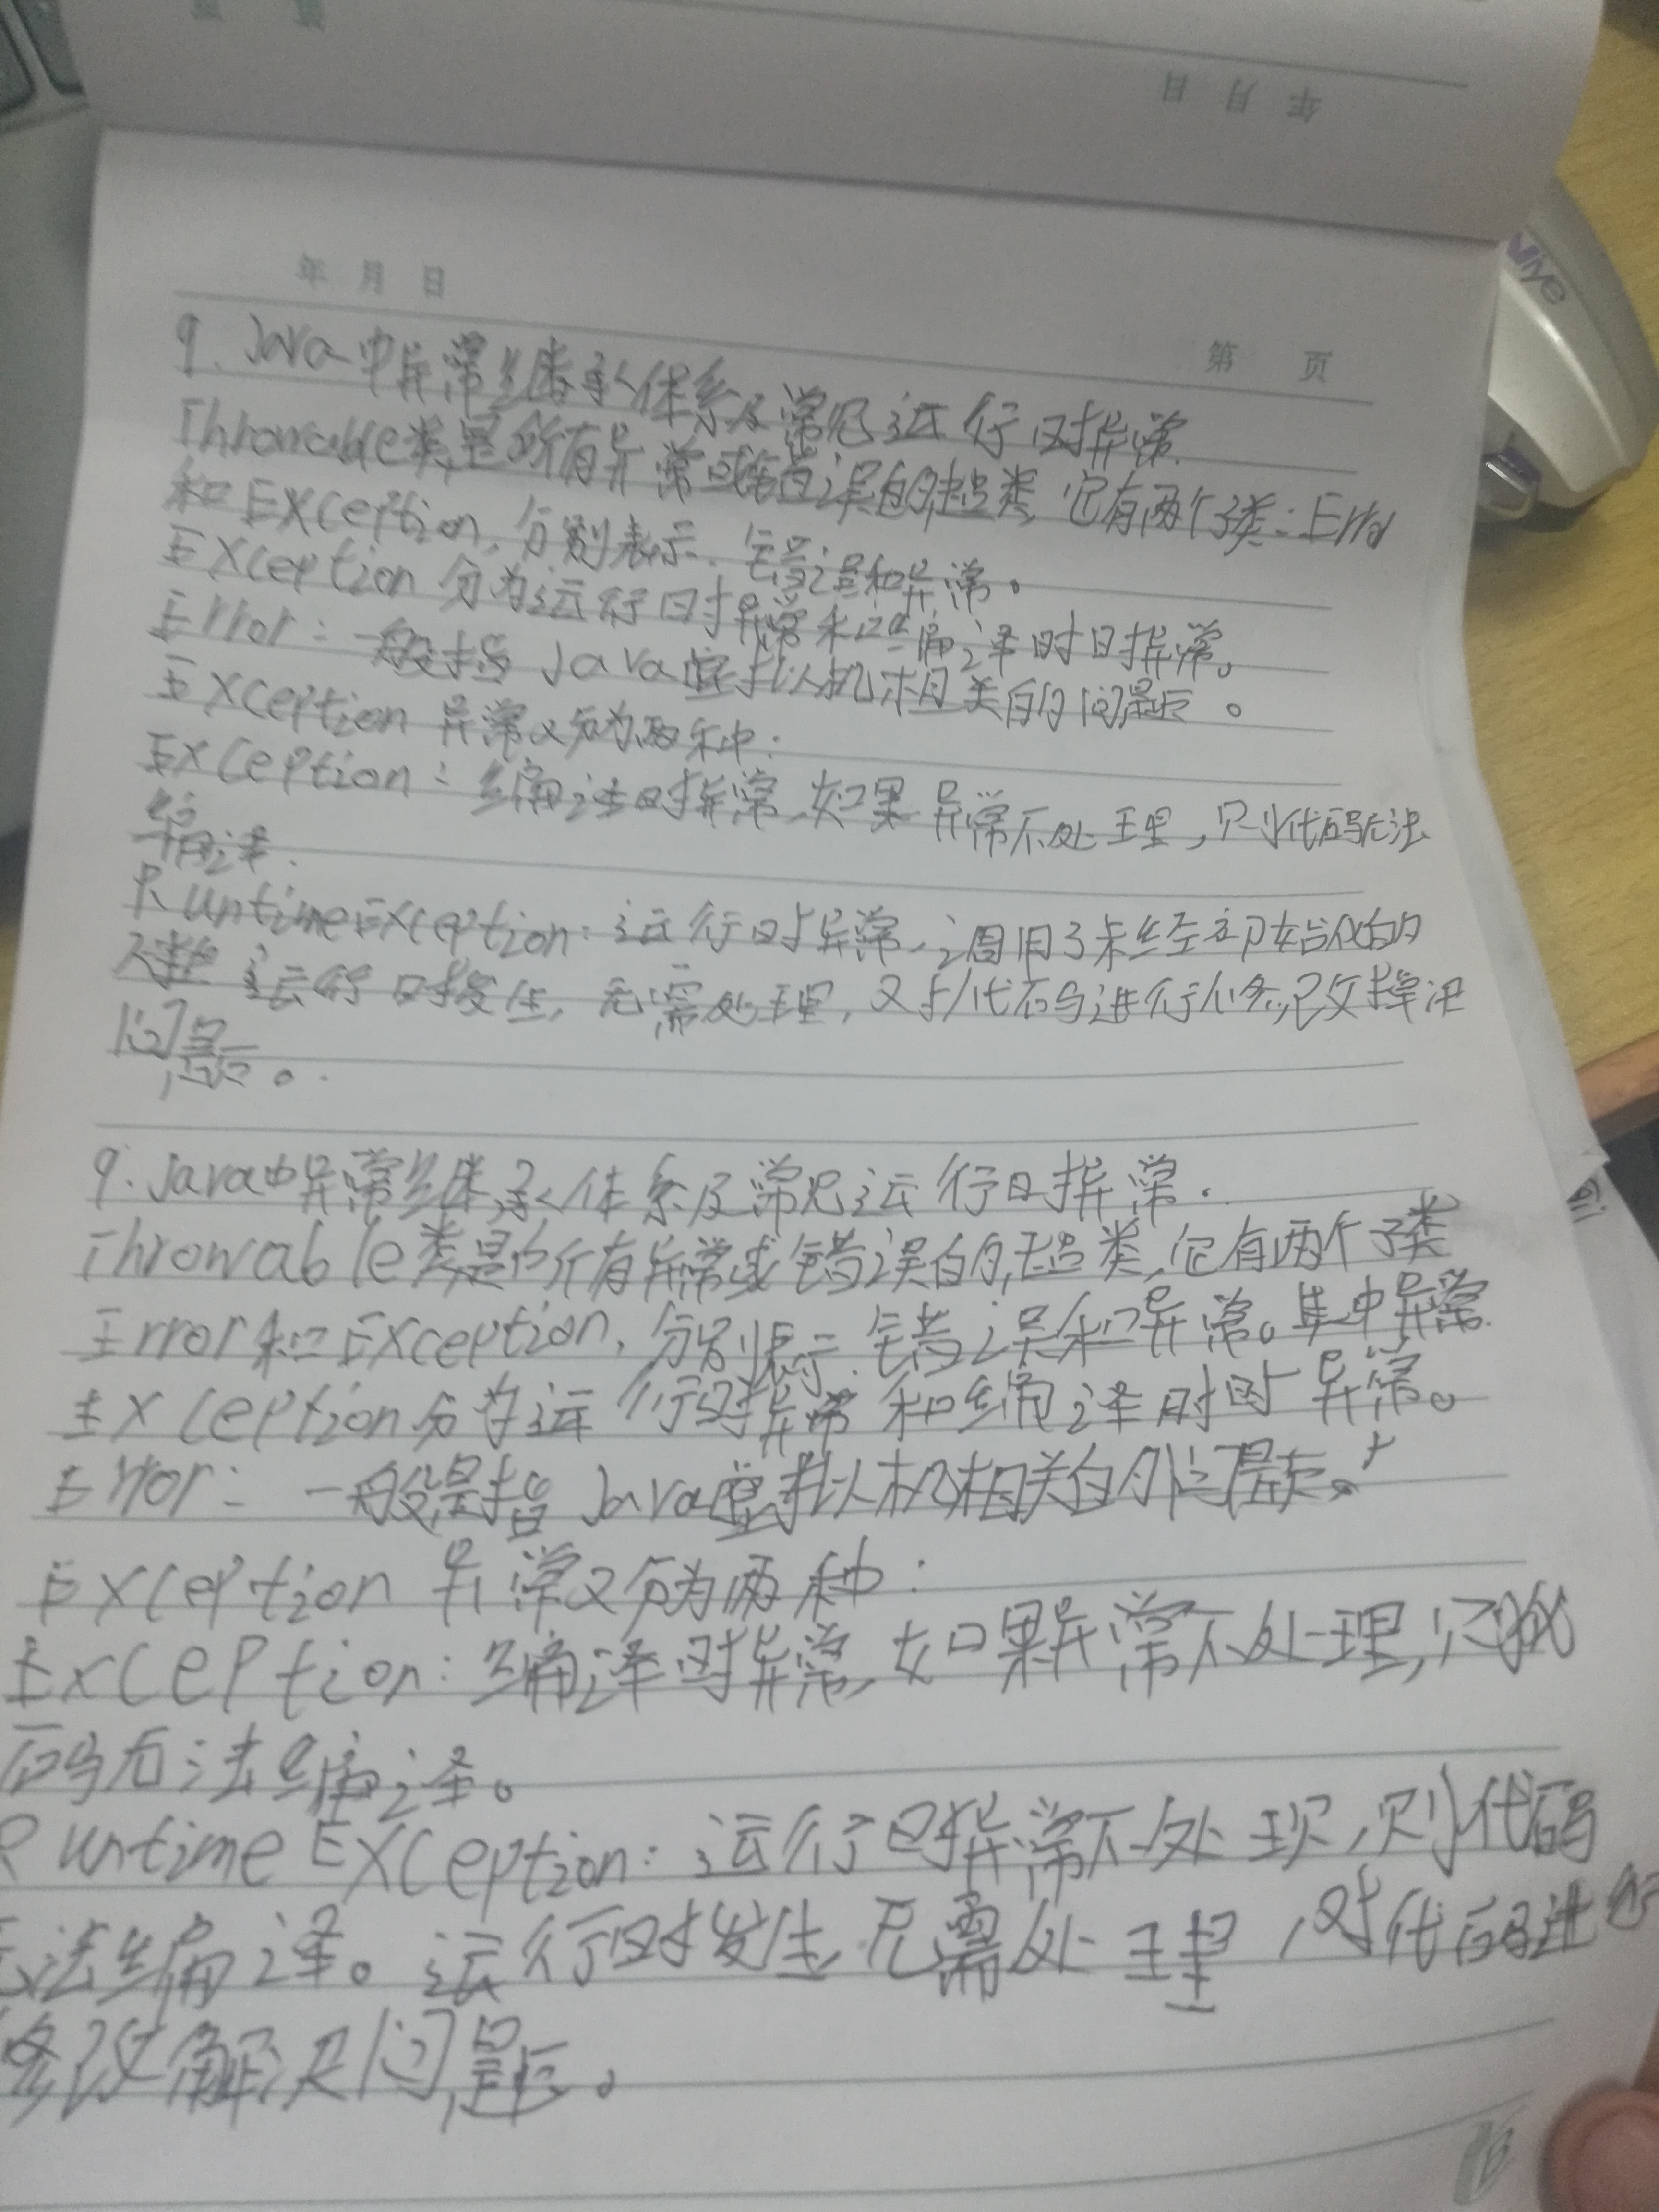 年 月 日
年 月 日
第 页
Niye
9. Java中异常继承体系及常见运行时异常.
Throwable类是所有异常或错误的超类,它有两个子类:Error
和Exception,分别表示错误和异常。
Exception分为运行时异常和编译时时异常。
Error:一般指Java虚拟机相关的问题。
Exception异常又分为两种:
Exception:编译时异常,如果异常不处理,则代码无法
编译.
RuntimeException:运行时异常,调用了未经初始化的
运行时发生,无需处理,对代码进行修改
问题。
9. Java中异常继承体系及常见运行时异常.
Throwable类是所有异常或错误的超类,它有两个子类
Error和Exception,分别表示错误和异常。其中异常
Exception分为运行时异常和编译时时异常。
Error:一般是指Java虚拟机相关的问题。
Exception异常又分为两种:
Exception:编译时异常,如果异常不处理,则代
码无法编译。
RuntimeException:运行时异常不处理,则代码
无法编译。运行时发生,无需处理,对代码进行
修改解决问题。